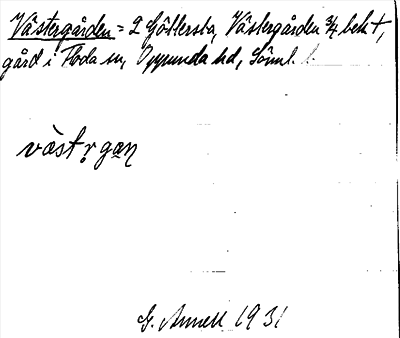 Västergården = 2 Göttersta, Västergården 3/4 beb. †,
gård i Floda sn, Oppunda hd, Söml. l.
väst ṛ gạn
G. Annell 1931